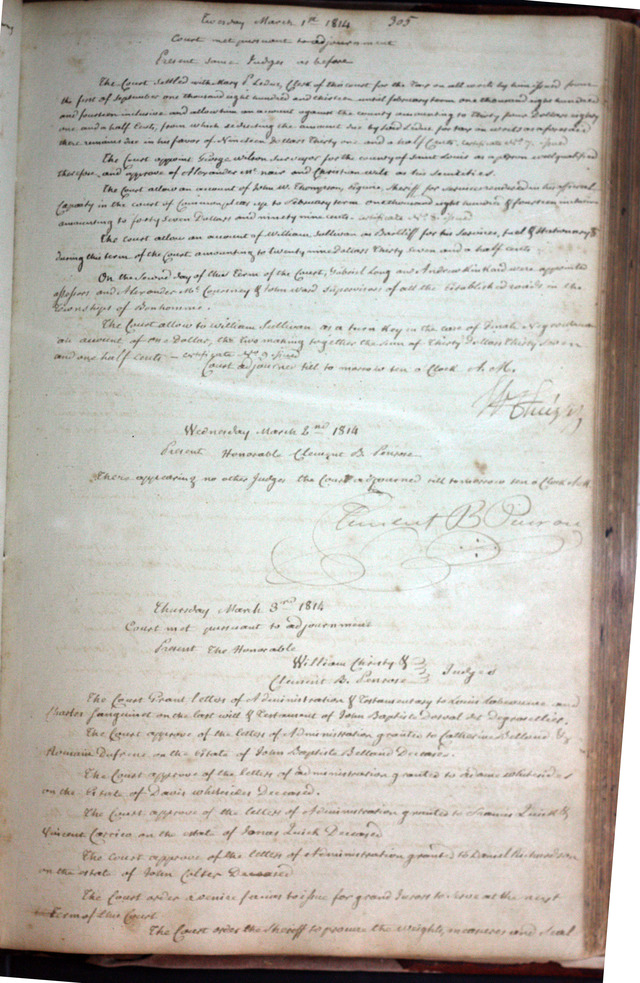 Tuesday March 1st 1814 305
Court met pursuant to adjournment
Present same Judges as before
The Court Settled with Mary P. Leduc, Clerk of this court for the Tax on all writs by him issued from
the first of September one thousand eight hundred and thirteen untill february term one thousand eight hundred
and fourteen inclusive and allow him an account against the county amounting to Thirty four Dollars eighty
one and a half Cents, from which deducting the amount due by said Leduc for tax on writs as aforesaid
there remains due in his favor of Nineteen Dollars Thirty one and a half Cents. certificate No. 7. issued
The Court appoint George Wilson Surveyor for the county of Saint Louis as a person well qualified
therefor, and approve of Alexander McNair and Christian Wilt as his Securities.
The Court allow an account of John W. Thompson, Esquire, Sheriff for services rendered in his official
Capacity in the court of Common pleas up to February term one thousand eight hundred & fourteen inclusive
amounting to forty Seven Dollars and ninety nine cents. certificate No. 8 issued
The court allow an account of William Sullivan as Bailiff for his Services, fuel & Stationary &
during this term of the Court amounting to twenty nine Dollars Thirty Seven and a half cents
On the Second day of this Term of the Court, Gabriel Long and Andrew Kinkaid were appointed
assessors and Alexander & John Ward Supervisors of all the Established roads in the
Townships of Bonhomme.
The Court allow to William Sullivan as a turn Key in the case of
an account of one Dollar, the two making together the sum of Thirty Dollars Thirty Seven
and one half cents - certificate No. 9 issued
Court adjourned till to morrow ten o Clock A.M.
Wm Christy
Wednesday March 2nd 1814
Present Honorable Clement B. Penrose
There appearing no other Judges the Court adjourned till tomorrow ten o Clock A.M.
Clement B Penrose
Thursday March 3rd 1814
Court met pursuant to adjournment
Present The Honorable
William Christy &
Clement B. Penrose Judges
The Court Grant letters of Administration & Testamentary to Louis Labeaume and
Charles Sanguinet on the last will & Testament of John Baptiste Dorval
The Court approve of the letters of Administration granted to Catherine Belland &
Romain Dufrene on the Estate of John Baptiste Belland Deceased.
The Court approve of the letters of administration granted to whitesides
on the Estate of Davis whitesides Deceased.
The Court approve of the letters of Administration granted to Francis Quick &
Vincent Carrico on the estate of Quick Deceased
The court approve of the letters of Administration granted to Daniel Richardson
on the estate of John Colter Deceased
The Court order a venire facias to issue for grand Jurors to Serve at the next
Term of this Court
The Court order the Sheriff to procure the weights, measures and Seal